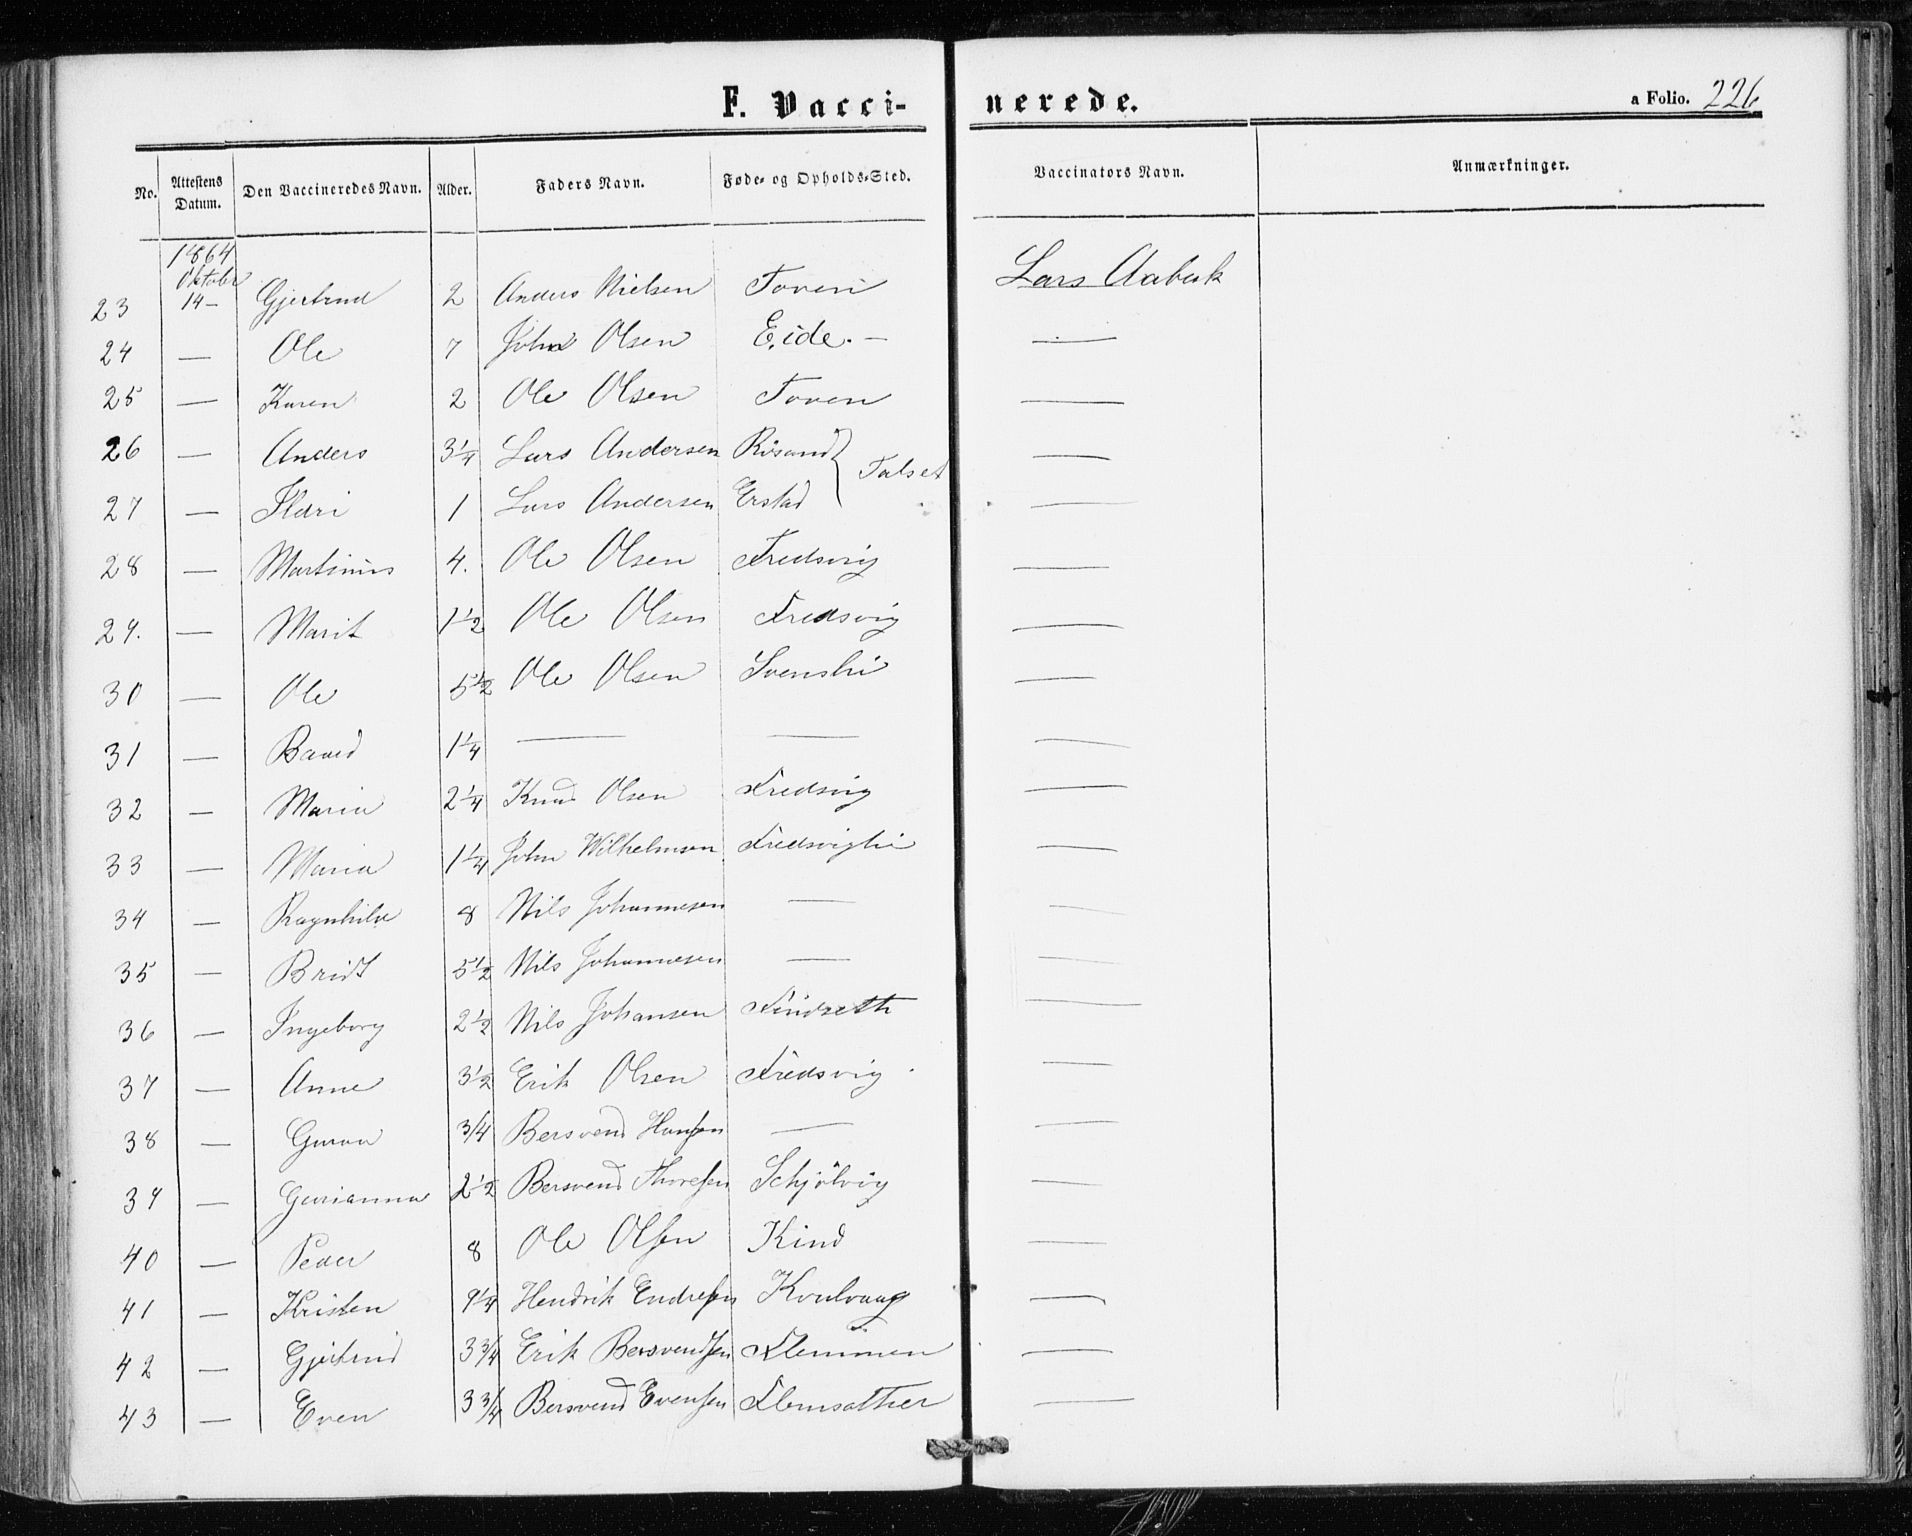 F. Vacci-nerede. a Folio. 226
No. Attestens Datum. Den Vaccineredes Navn. Alder. Faders Navn. Føde- og Opholds-Sted. Vaccinators Navn. Anmærkninger.
1864
Oktober
23 14 — Gjertrud 2 Anders Nielsen Toven Lars Aabuk
24 — Ole 7 John Olsen Eide. — —
25 — Karen 2 Ole Olsen Toven —
26 — Anders 3 1/4 Lars Andersen Risand } Talset —
27 — Ildri 1 Lars Andersen Erstad —
28 — Martinus 4. Ole Olsen Fredsvig —
29. — Marit 1 1/2 Ole Olsen Fredsvig —
30 — Ole 5 1/2 Ole Olsen Svensli —
31 — Baard 1 1/4 — — —
32 — Maria 2 1/4 Knud Olsen Fredsvig —
33 — Maria 1 1/4 John Wilhelmsen Fredsvigli —
34 — Ragnhild 8 Nils Johannesen — —
35 — Bridt 5 1/2 Nils Johannesen — —
36 — Ingeborg 2 1/2 Nils Johansen Findseth —
37 — Anne 3 1/2 Erik Olsen Fredsvig —
38 — Guroa 3/4 Bersvend Hansen — —
39 — Gurianna 2 1/2 Bersvend Thoresen Schjølvig —
40 — Peder 8 Ole Olsen Kind —
41 — Kristen 9 1/4 Hendrik Endresen Kvulvaag —
42 — Gjertrud 3 3/4 Erik Bersvendsen Flemmen —
43 — Even 3 3/4 Bersvend Evensen Flemsæther —